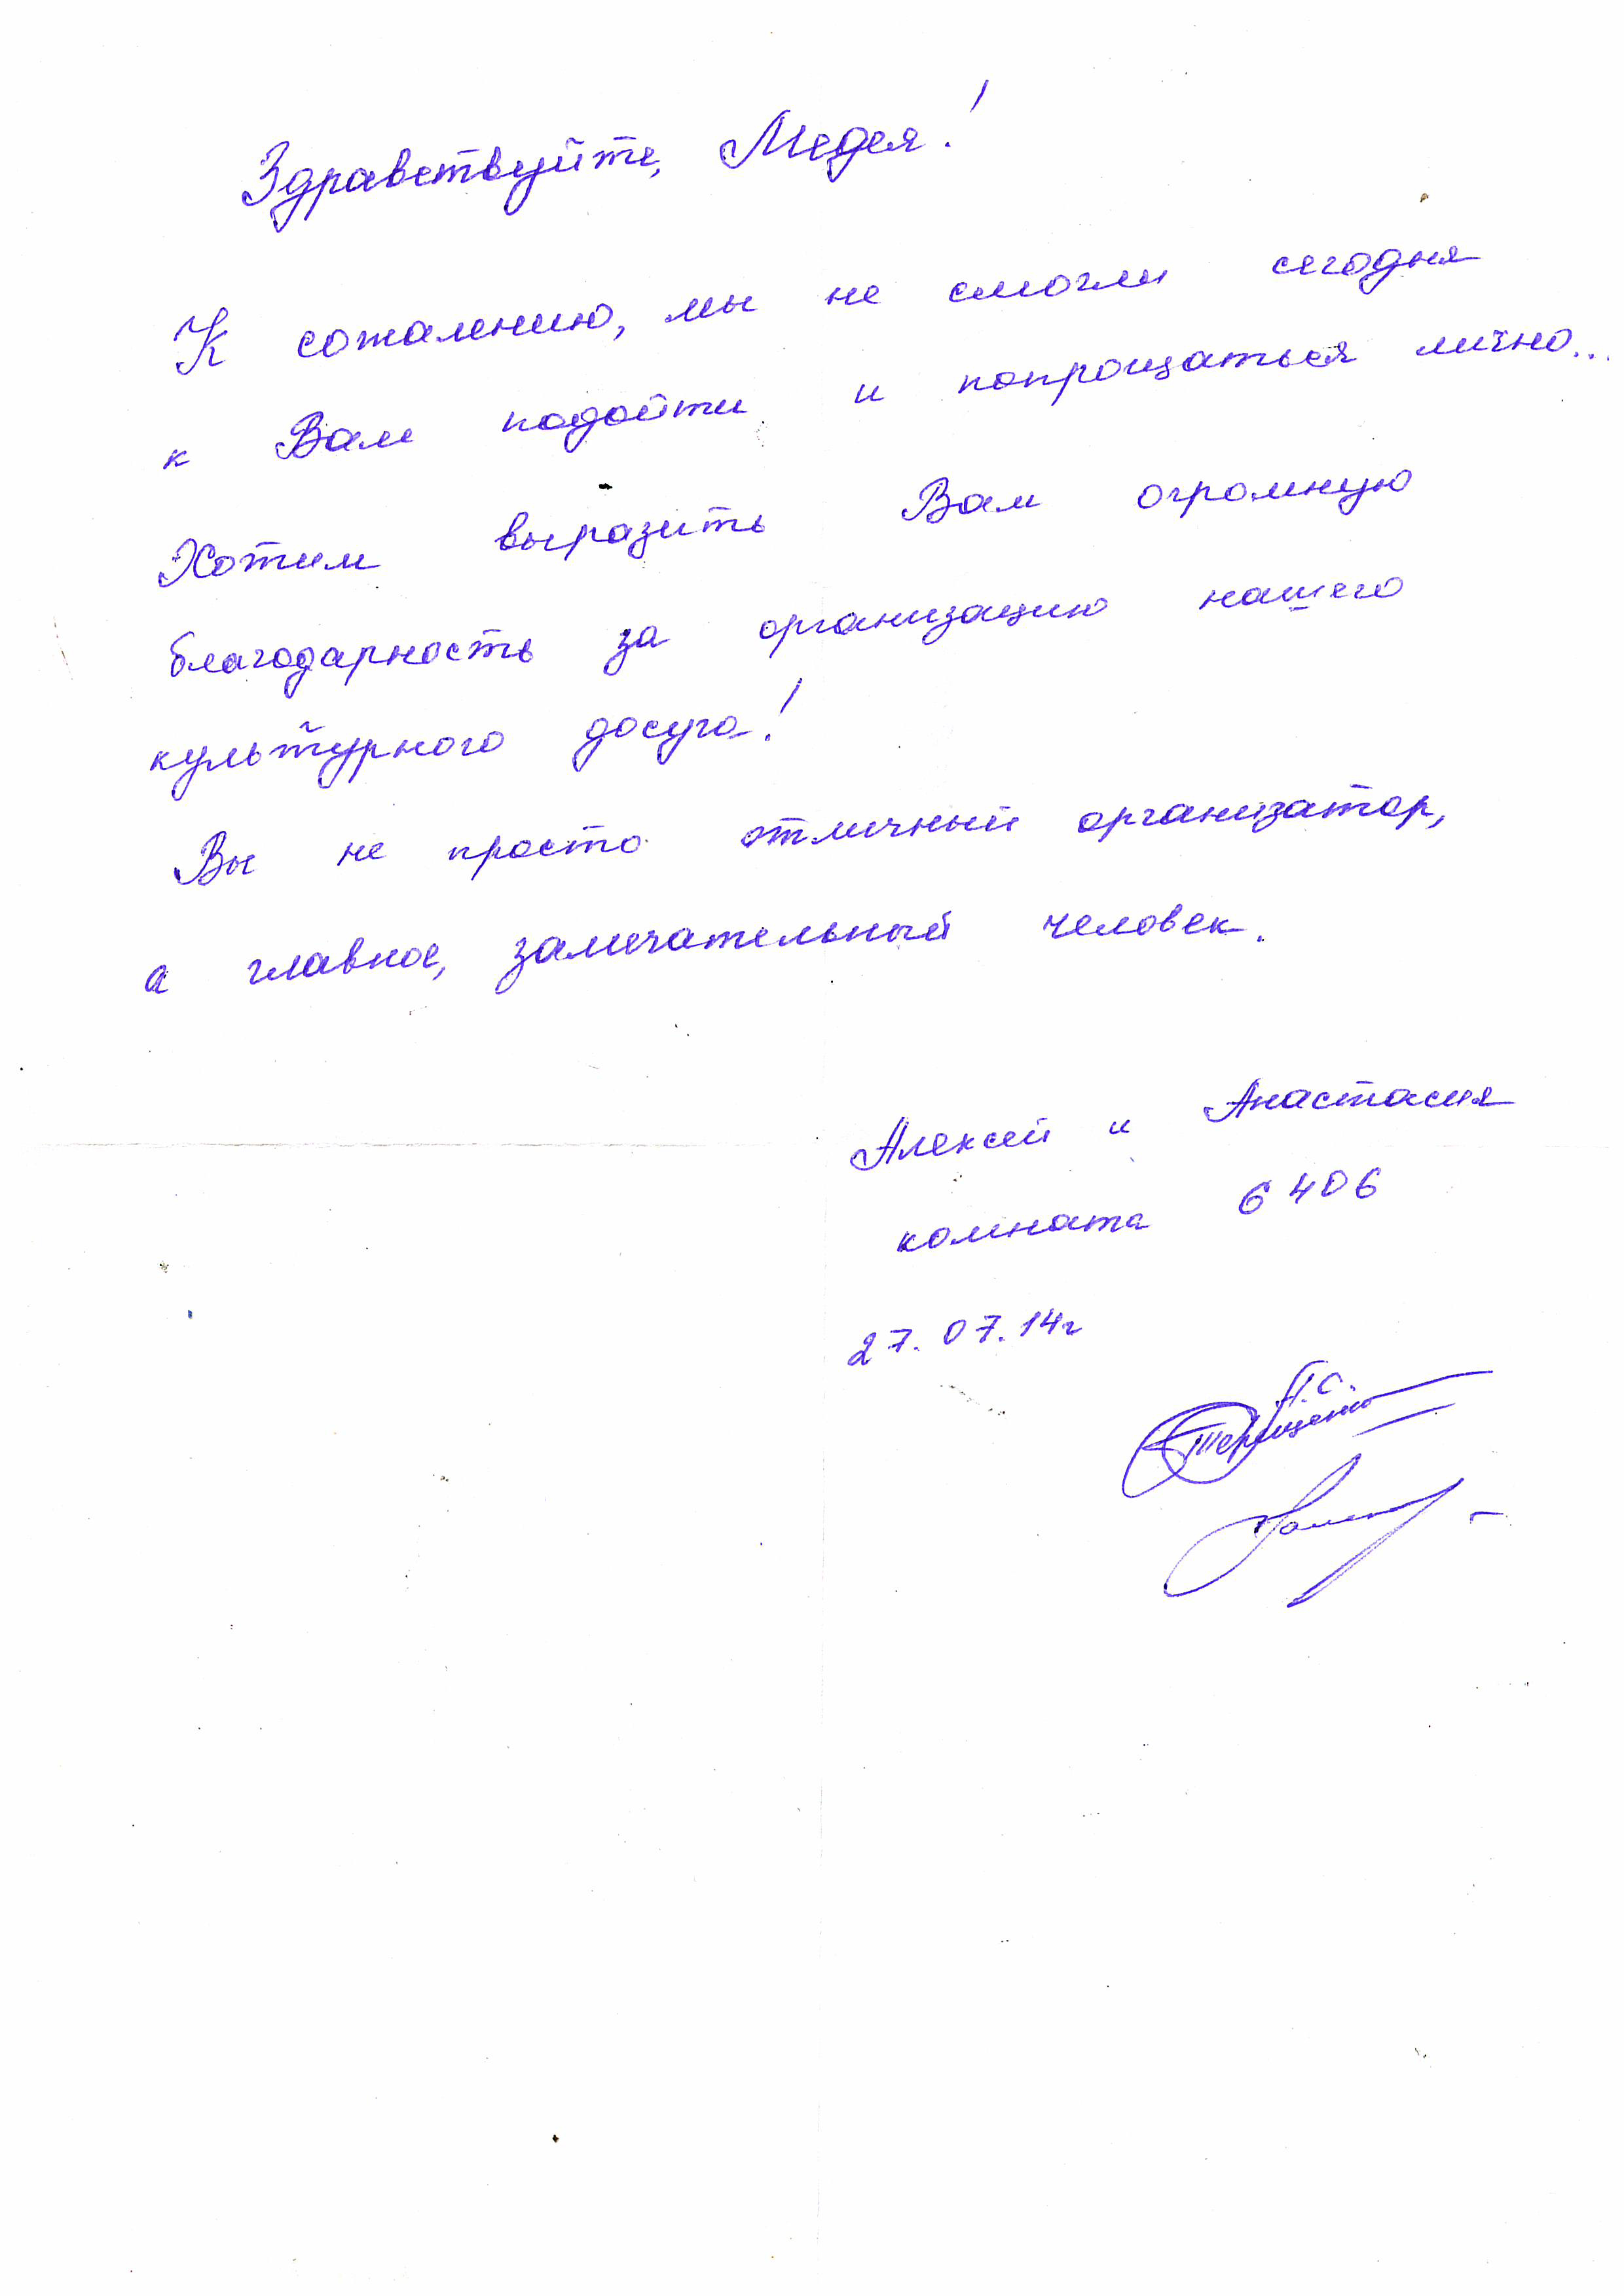 Здравствуйте, Медея!
К сожалению, мы не смогли сегодня
к Вам подойти и попрощаться лично...
Хотим выразить Вам огромную
благодарность за организацию нашего
культурного досуга!
Вы не просто отличный организатор,
а главное, замечательный человек.
Алексей и Анастасия
комната 6406
27.07.14г